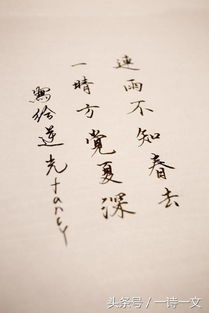 連雨不知春去
一晴方觉夏深
寫給逆光fancy
头条号/一诗一文